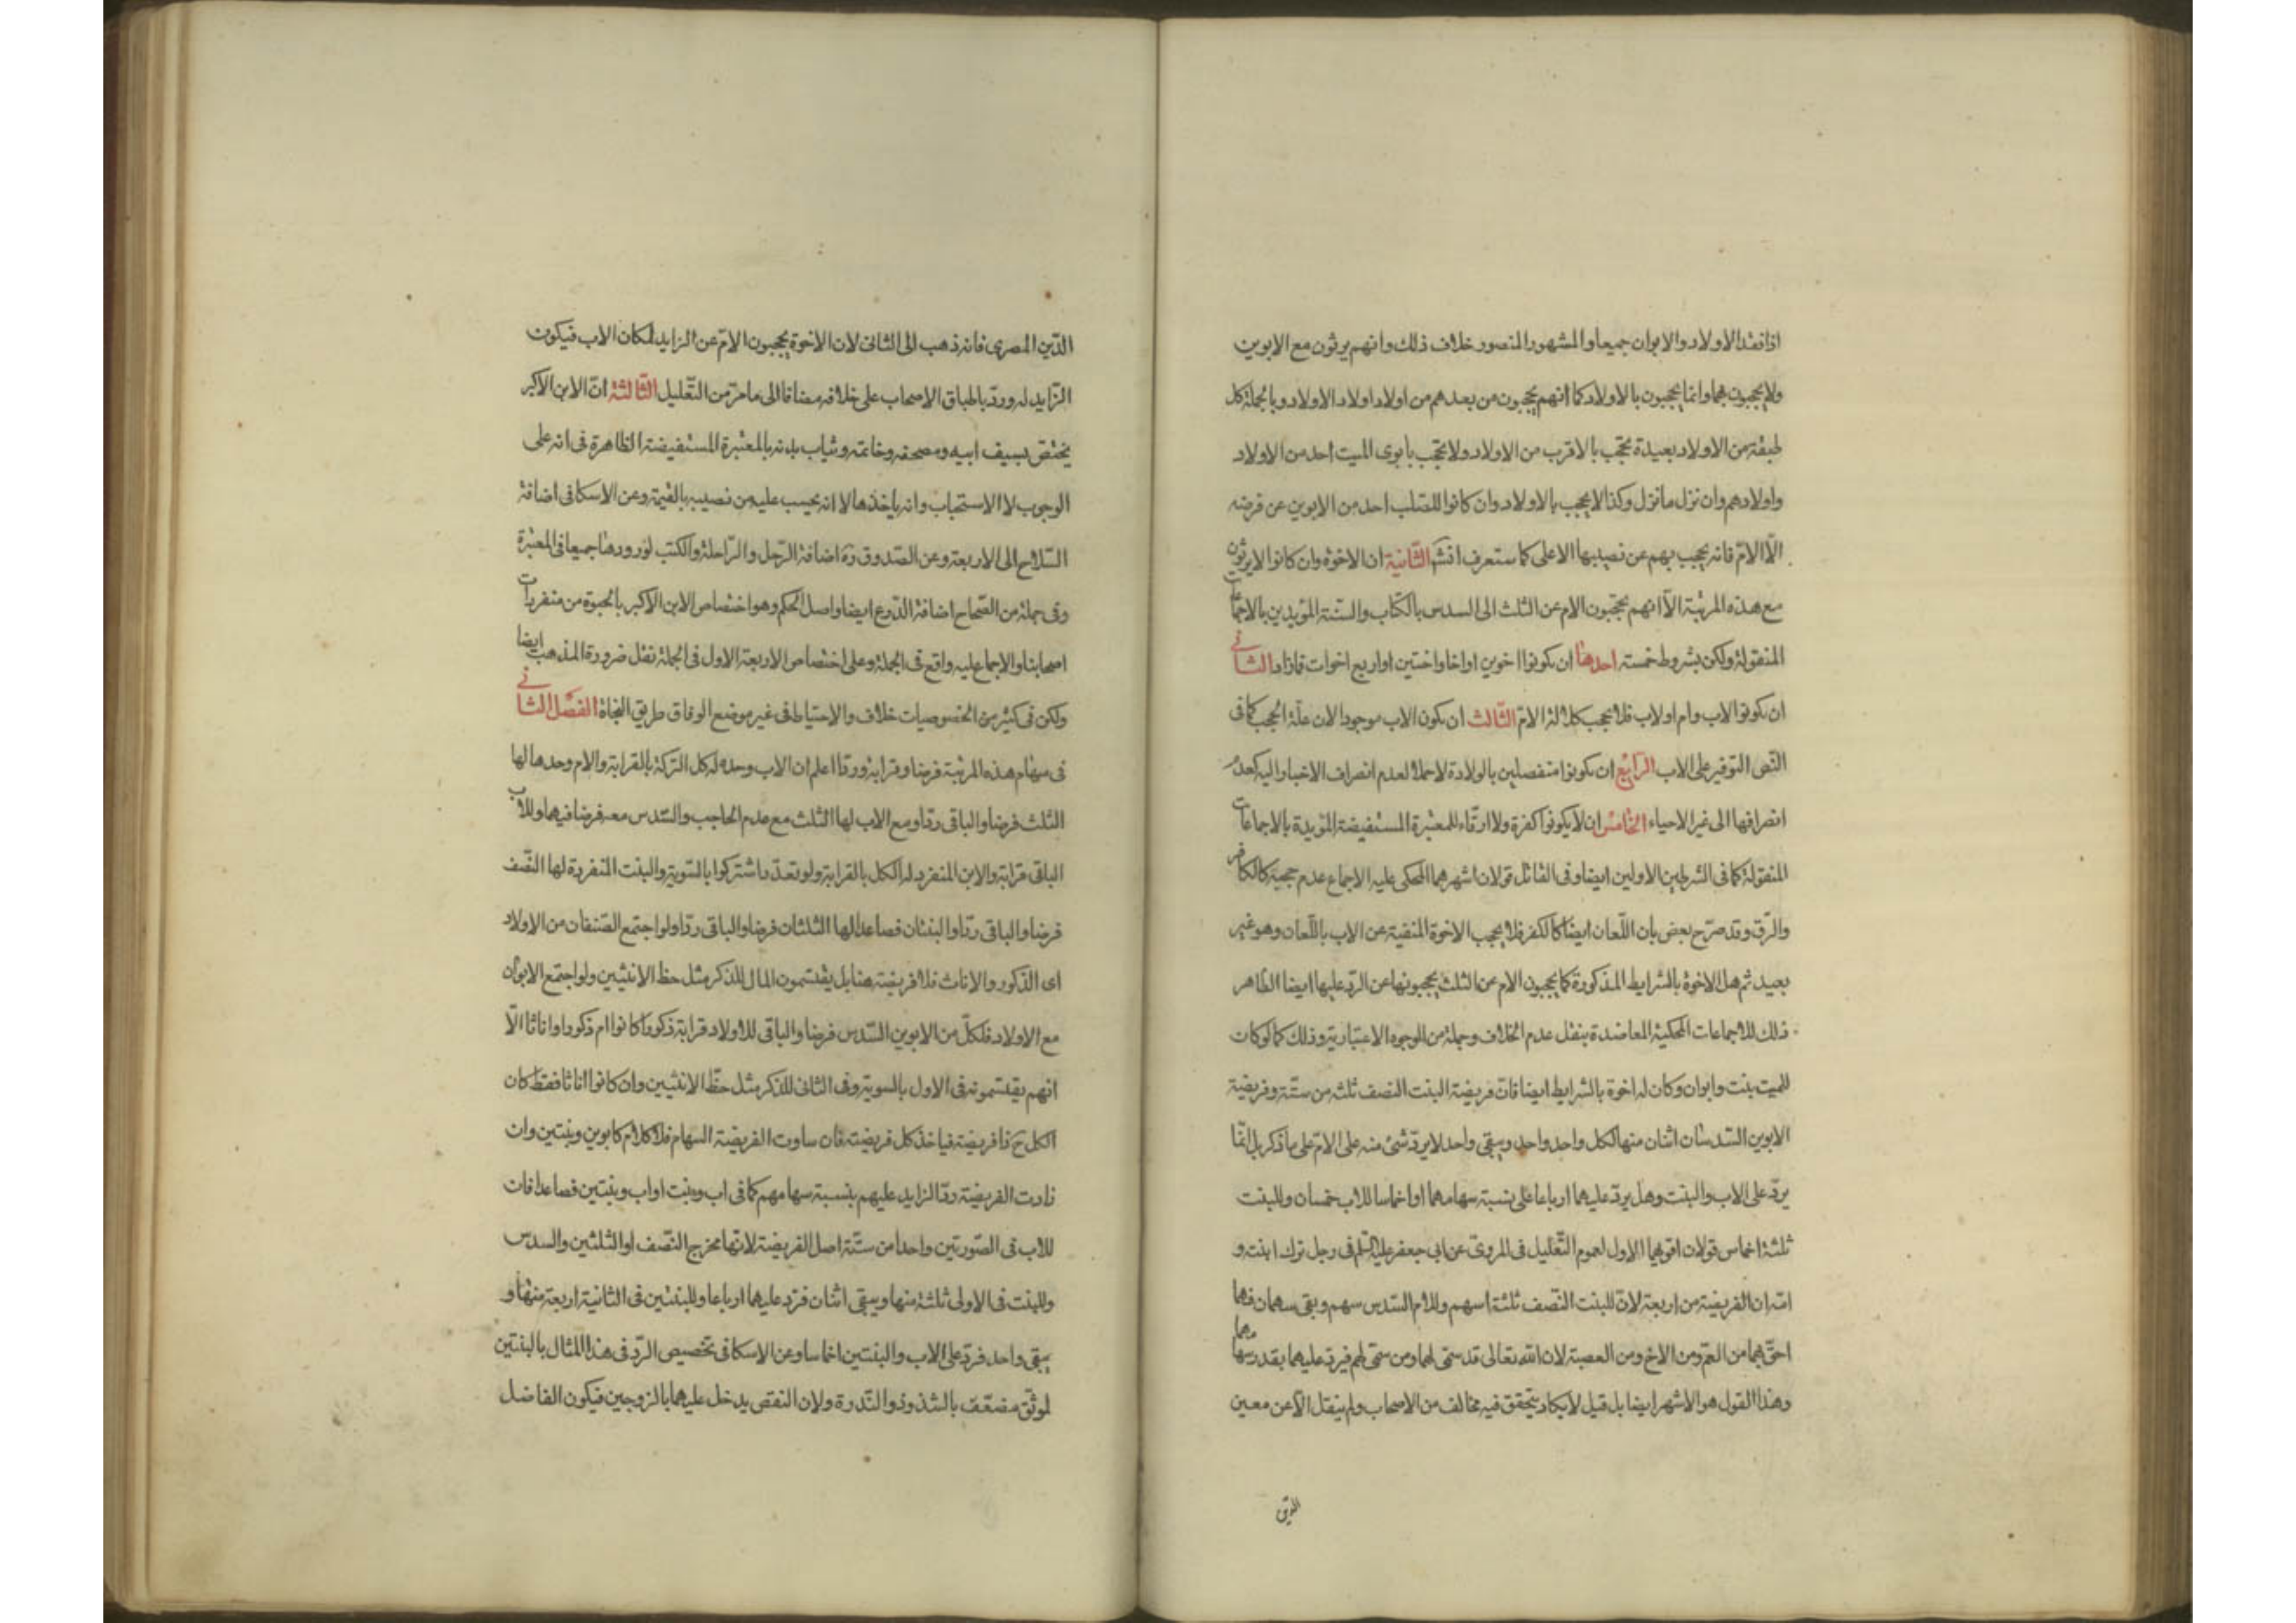 اذا فقد الاولاد والابوان جميعا والمشهور المنصور خلاف ذلك وانهم يرثون مع الابوين
ولا يحجبون بهما وانما يحجبون بالاولاد كما انهم يحجبون من بعدهم من اولاد اولاد الاولاد وبالجملة كل
طبقة من الاولاد بعيدة تحجب بالاقرب من الاولاد ولا تحجب بابوى الميت احد من الاولاد
واولادهم وان نزل ما نزل وكذا لا يحجب بالاولاد وان كانوا للصلب احد من الابوين عن فرضه
الّا الامّ فانه يحجب بهم عن نصيبها الاعلى كما ستعرف انش الثّانية ان الاخوة وان كانوا لا يرثون
مع هذه المرتبة الّا انهم يحجبون الام عن الثلث الى السدس بالكتاب والسّنة المؤيدين بالاجماعات
المنقولة ولكن بشروط خمسة احدها ان يكونوا اخوين او اخا واختين او اربع اخوات فمازاد الثانى
ان يكونوا لاب وام او لاب فلا يحجب كلالة الامّ الثّالث ان يكون الاب موجودا لان علّة الحجب كما فى
النّص التوفير على الاب الرّابع ان يكونوا منفصلين بالولادة لا حملا لعدم انصراف الاخبار اليه كعدم
انصرافها الى غير الاحياء الخامس ان لا يكونوا كفرة ولا ارقّاء للمعتبرة المستفيضة المؤيدة بالاجماعات
المنقولة كما فى الشرطين الاولين ايضا وفى القاتل قولان اشهرهما المحكى عليه الاجماع عدم حجبه كالكافر
والرّق وقد صرّح بعض بان اللّعان ايضا كالكفر فلا يحجب الاخوة المنفية عن الاب باللّعان وهو غير
بعيد ثم هل الاخوة بالشرايط المذكورة كما يحجبون الام عن الثلث يحجبونها عن الردّ عليها ايضا الظاهر
ذلك للاجماعات المحكية المعاضدة بنقل عدم الخلاف وجملة من الوجوه الاعتبارية وذلك كما لو كان
للميت بنت وابوان وكان له اخوة بالشرايط ايضا فانّ فريضة البنت النصف ثلث من ستّة وفريضة
الابوين السّدسان اثنان منها لكل واحد واحد ويبقى واحد لا يردّ شئ منه على الامّ على ما ذكر بل انّما
يردّ على الاب والبنت وهل يردّ عليهما ارباعا على نسبة سهامهما او اخماسا للاب خمسان وللبنت
ثلثة اخماس قولان اقويهما الاول لعموم التّعليل فى المروىّ عن ابى جعفر عليه السّلم فى رجل ترك ابنته و
امّه ان الفريضة من اربعة لانّ للبنت النّصف ثلثة اسهم وللام السّدس سهم وبقى سهمان فهما
احقّ بهما من العمّ ومن الاخ ومن العصبة لان الله تعالى قد سمّى لهما ومن سمّى لهم فيردّ عليهما بقدر سهامهما
وهذا القول هو الاشهر ايضا بل قيل لا يكاد يتحقق فيه مخالف من الاصحاب ولم ينقل الّا عن معين
الدّين
الدّين المصرى فانه ذهب الى الثانى لان الاخوة يحجبون الامّ عن الزايد لمكان الاب فيكون
الزّايد له وردّ باطباق الاصحاب على خلافه مضافا الى ما مرّ من التّعليل الثّالثة انّ الابن الاكبر
يختصّ بسيف ابيه ومصحفه وخاتمه وثياب بدنه بالمعتبرة المستفيضة الظاهرة فى انه على
الوجوب لا الاستحباب وانه ياخذها لا انه يحسب عليه من نصيبه بالقيمة وعن الاسكافى اضافة
السّلاح الى الاربعة وعن الصّدوق ره اضافة الرّحل والرّاحلة والكتب لورودها جميعا فى المعتبرة
وفى جملة من الصّحاح اضافة الدّرع ايضا واصل الحكم وهو اختصاص الابن الاكبر بالحبوة من متفردات
اصحابنا والاجماع عليه واقع فى الجملة وعلى اختصاص الاربعة الاول فى الجملة نقل ضرورة المذهب ايضا
ولكن فى كثير من الخصوصيات خلاف والاحتياط فى غير موضع الوفاق طريق النجاة الفصل الثانى
فى سهام هذه المرتبة فرضا وقرابة وردّا اعلم ان الاب وحده له كل التركة بالقرابة والام وحدها لها
الثلث فرضا والباقى ردّا ومع الاب لها الثلث مع عدم الحاجب والسّدس معه فرضا فيهما وللاب
الباقى قرابة والابن المنفرد له الكل بالقرابة ولو تعدّد اشتركوا بالسّوية والبنت المنفردة لها النّصف
فرضا والباقى ردّا والبنتان فصاعدا لها الثلثان فرضا والباقى ردّا ولو اجتمع الصّنفان من الاولاد
اى الذكور والاناث فلا فريضة هنا بل يقتسمون المال للذكر مثل حظ الانثيين ولو اجتمع الابوان
مع الاولاد فلكلّ من الابوين السّدس فرضا والباقى للاولاد قرابة ذكورا كانوا ام ذكورا واناثا الّا
انهم يقتسمونه فى الاول بالسوية وفى الثانى للذكر مثل حظّ الانثيين وان كانوا اناثا فقط كان
الكل ح ذا فريضة فياخذ كل فريضته فان ساوت الفريضة السهام فلا كلام كابوين وبنتين وان
زادت الفريضة ردّ الزايد عليهم بنسبة سهامهم كما فى اب وبنت او اب وبنتين فصاعدا فان
للاب فى الصّورتين واحدا من ستّة اصل الفريضة لانّها مخرج النّصف او الثلثين والسدس
وللبنت فى الاولى ثلثة منها ويبقى اثنان فتردّ عليهما ارباعا وللبنتين فى الثانية اربعة منها و
يبقى واحد فردّ على الاب والبنتين اخماسا وعن الاسكافى تخصيص الردّ فى هذا المثال بالبنتين
لموثّق مضعّف بالشذوذ والنّدرة ولان النقص يدخل عليهما بالزوجين فيكون الفاضل